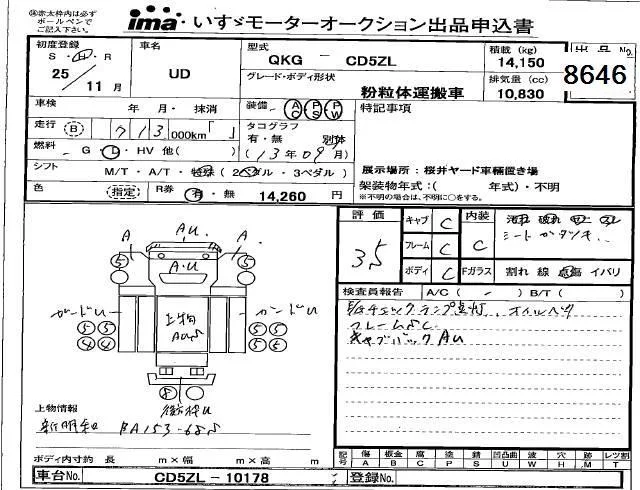 ㊟赤太枠内は必ず
ボールペンで
ご記入下さい。
ima・いすゞモーターオークション出品申込書
初度登録
S・H・R
25/11月
車名
UD
型式
QKG - CD5ZL
グレード・ボディ形状
粉粒体運搬車
積載 (kg)
14,150
排気量 (cc)
10,830
出品No.
8646
車検 年 月・抹消
装備 AC PS PW
特記事項
走行 (B) 713,000km「 」
タコグラフ
有・無 別体
(13年09月)
燃料 G・L・HV 他( )
シフト M/T・A/T・特殊(2ペダル・3ペダル)
展示場所：桜井ヤード車輌置き場
架装物年式：( 年式)・不明
※不明の場合は、不明に○をする。
色 (指定) R券 有・無 14,260 円
評価
3.5
キャブ C
フレーム C
ボディ C
内装
C
シートガタツキ
Fガラス 割れ 線 点傷 イバリ
検査員報告 A/C( - ) B/T( )
A Au A
Au
5 5
ガードU 上物 ガードU
AU5
5 5 5 5
4 4 5 5
8
上物情報
新明和 BA153-685
E/gチェックランプ点灯、オイルベタ
フレームSC
キャブバックAU
ボディ内寸約 長 m×幅 m×高 m
記号 傷A 板金B 腐C 塗P 錆S 凹凸曲U 波W 穴H 跡M レツ割T
車台No. CD5ZL-10178 登録No.